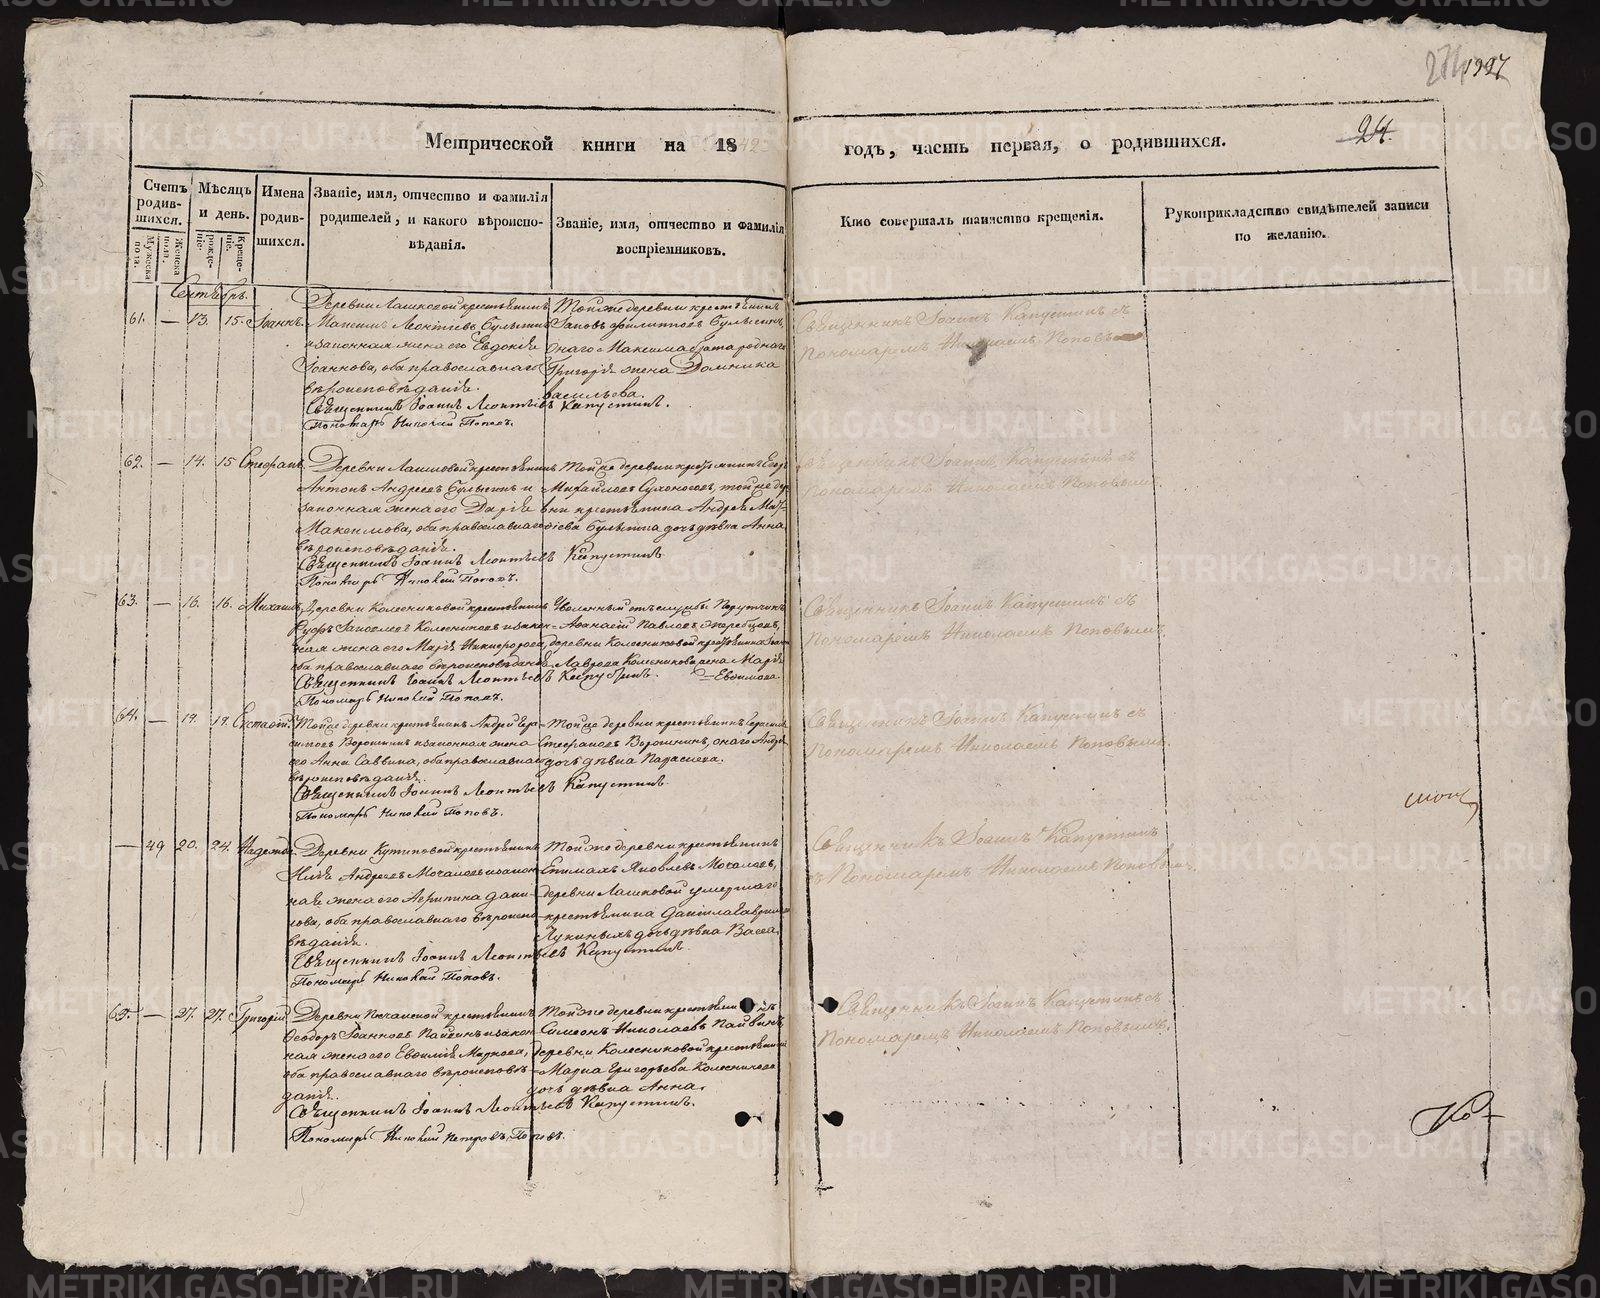 1997
24.
Метрической книги на 1842 годъ, часть первая, о родившихся.
Счетъ родившихся.
Мужеска пола.
Женска пола.
Мѣсяцъ и день.
рожденіе.
Крещеніе.
Имена родившихся.
Званіе, имя, отчество и фамилія родителей, и какого вѣроисповѣданія.
Званіе, имя, отчество и фамилія воспріемниковъ.
Кто совершалъ таинство крещенія.
Рукоприкладство свидѣтелей записи по желанію.
Сентябрь.
61. — 13. 15. Іоаннъ.
Деревни Лашковой крестьянинъ
Максимъ Леонтьевъ Булыгинъ
и законная жена его Евдокія
Іоаннова, оба православнаго
вѣроисповѣданія.
Тойже деревни крестьянинъ
Филипповъ Булыгинъ,
онаго Максима брата роднаго
Григорія жена Домника
Васильева.
Священникъ Іоаннъ Леонтьевъ Капустинъ.
Пономарь Николай Поповъ.
Священникъ Іоаннъ Капустинъ съ
Пономаремъ Николаемъ Поповымъ
62. — 14. 15 Стефанъ.
Деревни Лашковой крестьянинъ
Антонъ Андреевъ Булыгинъ и
законная жена его Дарія
Максимова, оба православнаго
вѣроисповѣданія.
Тойже деревни крестьянинъ Егоръ
Михайловъ Сухоносовъ, тойже де
вни крестьянина Андрея
Булыгина дочь дѣвка Анна
Священникъ Іоаннъ Леонтьевъ Капустинъ
Пономарь Николай Поповъ.
Священникъ Іоаннъ Капустинъ съ
Пономаремъ Николаемъ Поповымъ.
63. — 16. 16. Михаилъ,
Деревни Колесниковой крестьянинъ
Колесниковъ и закон=
ная жена его Марія Никифорова,
оба православнаго вѣроисповѣданія
Уволенный отъ службы
Афанасій Павловъ Жеребцовъ,
деревни Колесниковой крестьянина
Лаврова Колесникова жена Марія
Евфимова.
Священникъ Іоаннъ Леонтьевъ Капустинъ.
Пономарь Николай Поповъ.
Священникъ Іоаннъ Капустинъ съ
Пономаремъ Николаемъ Поповымъ.
64. — 19. 19. Евстафій.
Тойже деревни крестьянинъ Андрей Гера=
симовъ Ворошнинъ и законная жена
его Анна Саввина, оба православнаго
вѣроисповѣданія.
Тойже деревни крестьянинъ Герасимъ
Стефановъ Ворошнинъ, онаго Андрея
дочь дѣвка Параскева.
Священникъ Іоаннъ Леонтьевъ Капустинъ.
Пономарь Николай Поповъ.
Священникъ Іоаннъ Капустинъ съ
Пономаремъ Николаемъ Поповымъ.
— 49 20. 24. Надежда.
Деревни Кутиковой крестьянинъ
Илія Андреевъ Мочаловъ и закон=
ная жена его Агрипина Дани=
лова, оба православнаго вѣроиспо=
вѣданія.
Тойже деревни крестьянинъ
Епимахъ Яковлевъ Мочаловъ,
деревни Лашковой умершаго
крестьянина Даніила Гаврилова
Лукиныхъ дочь дѣвка Васса.
Священникъ Іоаннъ Леонтьевъ Капустинъ.
Пономарь Николай Поповъ.
Священникъ Іоаннъ Капустинъ
съ Пономаремъ Николаемъ Поповымъ.
65. — 27. 27. Григорій
крестьянинъ
Ѳеодоръ Іоанновъ Пайвинъ и закон=
ная жена его Евфимія Маркова,
оба православнаго вѣроисповѣ=
данія.
Тойже деревни крестьянинъ
Симеонъ Николаевъ Пайвинъ,
деревни Колесниковой крестьянина
Марка Григорьева Колесникова
дочь дѣвка Анна.
Священникъ Іоаннъ Леонтьевъ Капустинъ.
Пономарь Николай Петровъ Поповъ.
Священникъ Іоаннъ Капустинъ съ
Пономаремъ Николаемъ Поповымъ.
METRIKI.GASO-URAL.RU